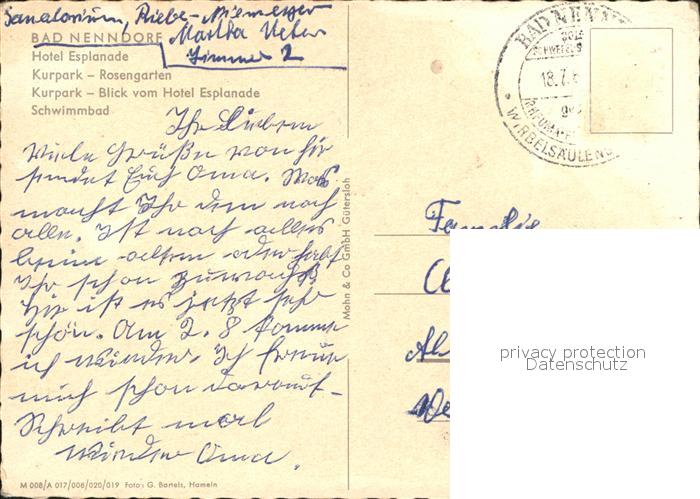 Sanatorium, Riebe-
BAD NENNDORF Martha
Zimmer 2
Hotel Esplanade
Kurpark – Rosengarten
Kurpark – Blick vom Hotel Esplanade
Schwimmbad
Ihr Lieben
Viele Grüße von hir
sendet Euch Oma. Was
macht Ihr den noch
alle. Ist noch alles
beim alten oder habt
Ihr schon Zuwachs.
Hir ist es jetzt sehr
schön. Am 2. 8 komme
ich wieder. Ich freue
mich schon darauf-
Schreibt mal
wieder Oma.
M 008/A 017/008/020/019 Foto: G. Bartels, Hameln
Mohn & Co GmbH Gütersloh
BAD NENN
18.7.
WIRBELSÄULEN
Familie
privacy protection
Datenschutz